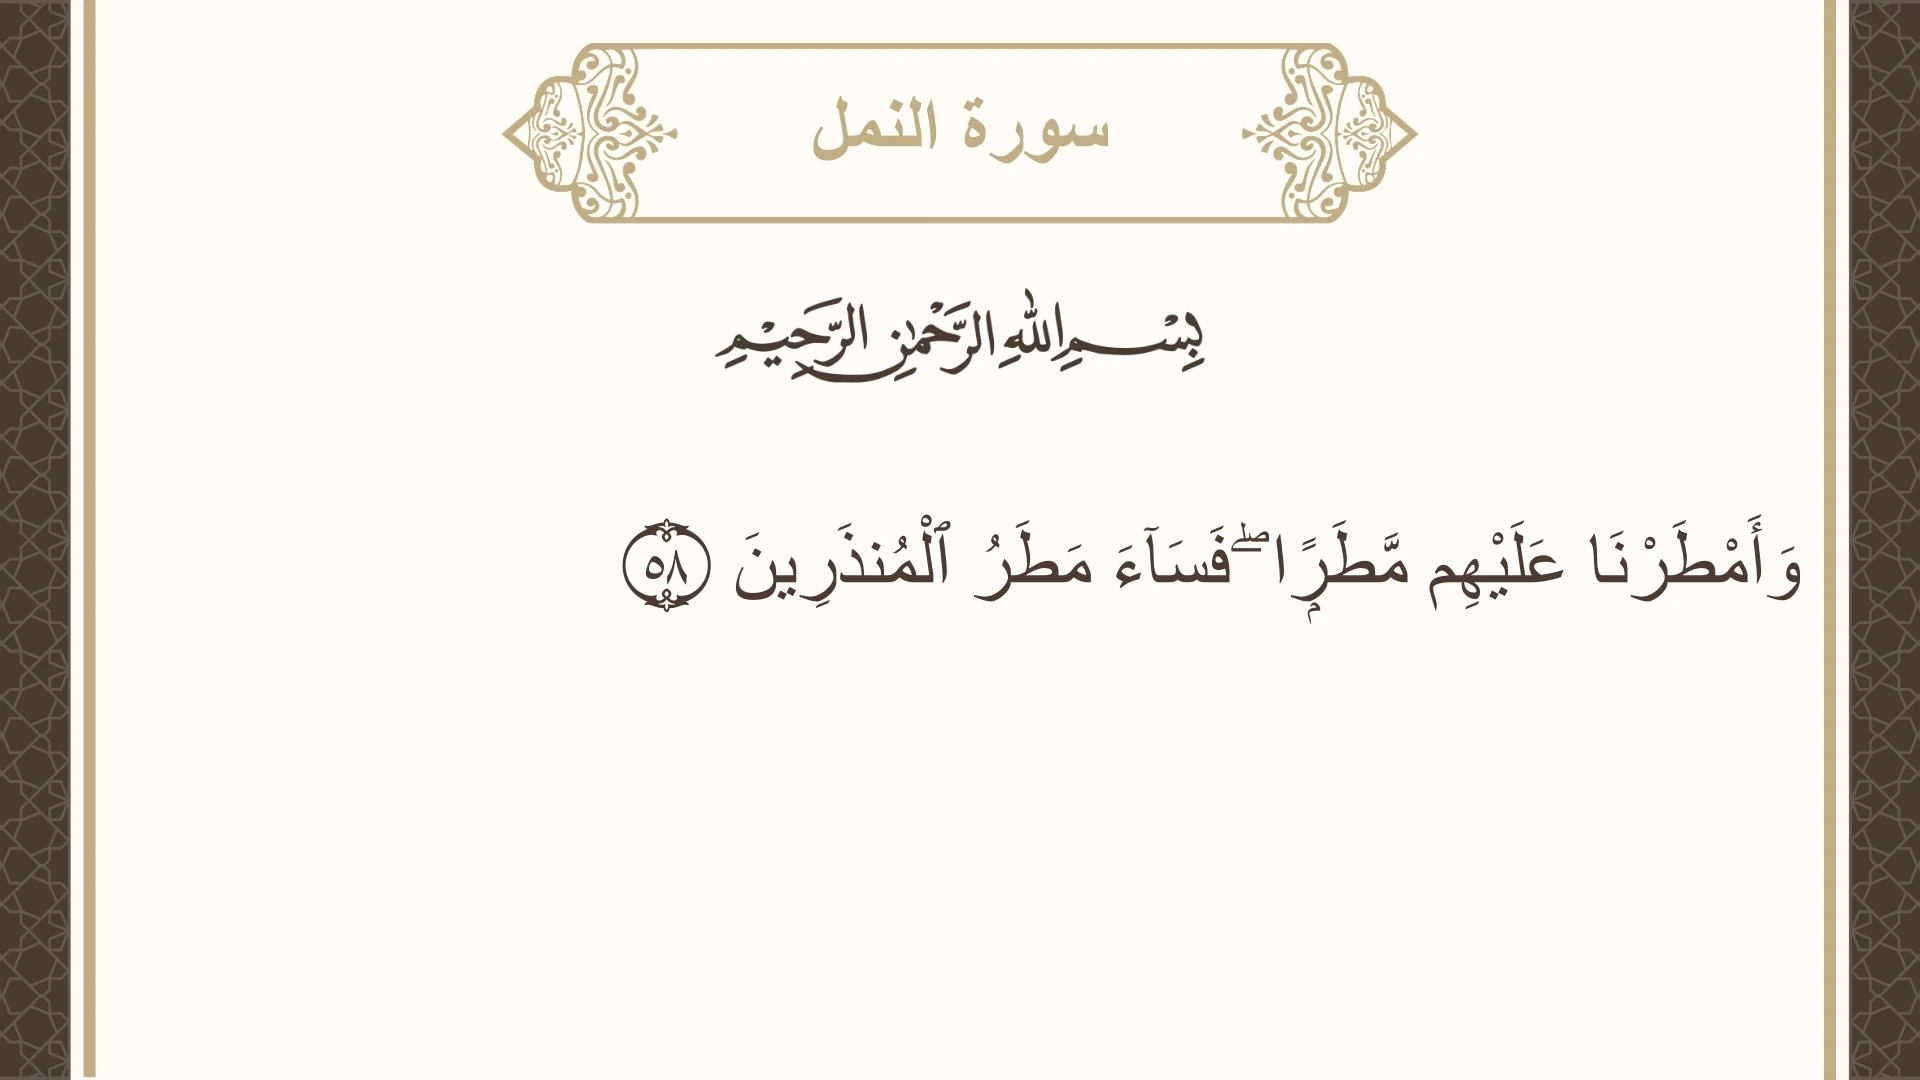 سورة النمل
بِسْمِ اللهِ الرَّحْمٰنِ الرَّحِيْمِ
وَأَمْطَرْنَا عَلَيْهِم مَّطَرًۭا ۖ فَسَآءَ مَطَرُ ٱلْمُنذَرِينَ ٥٨